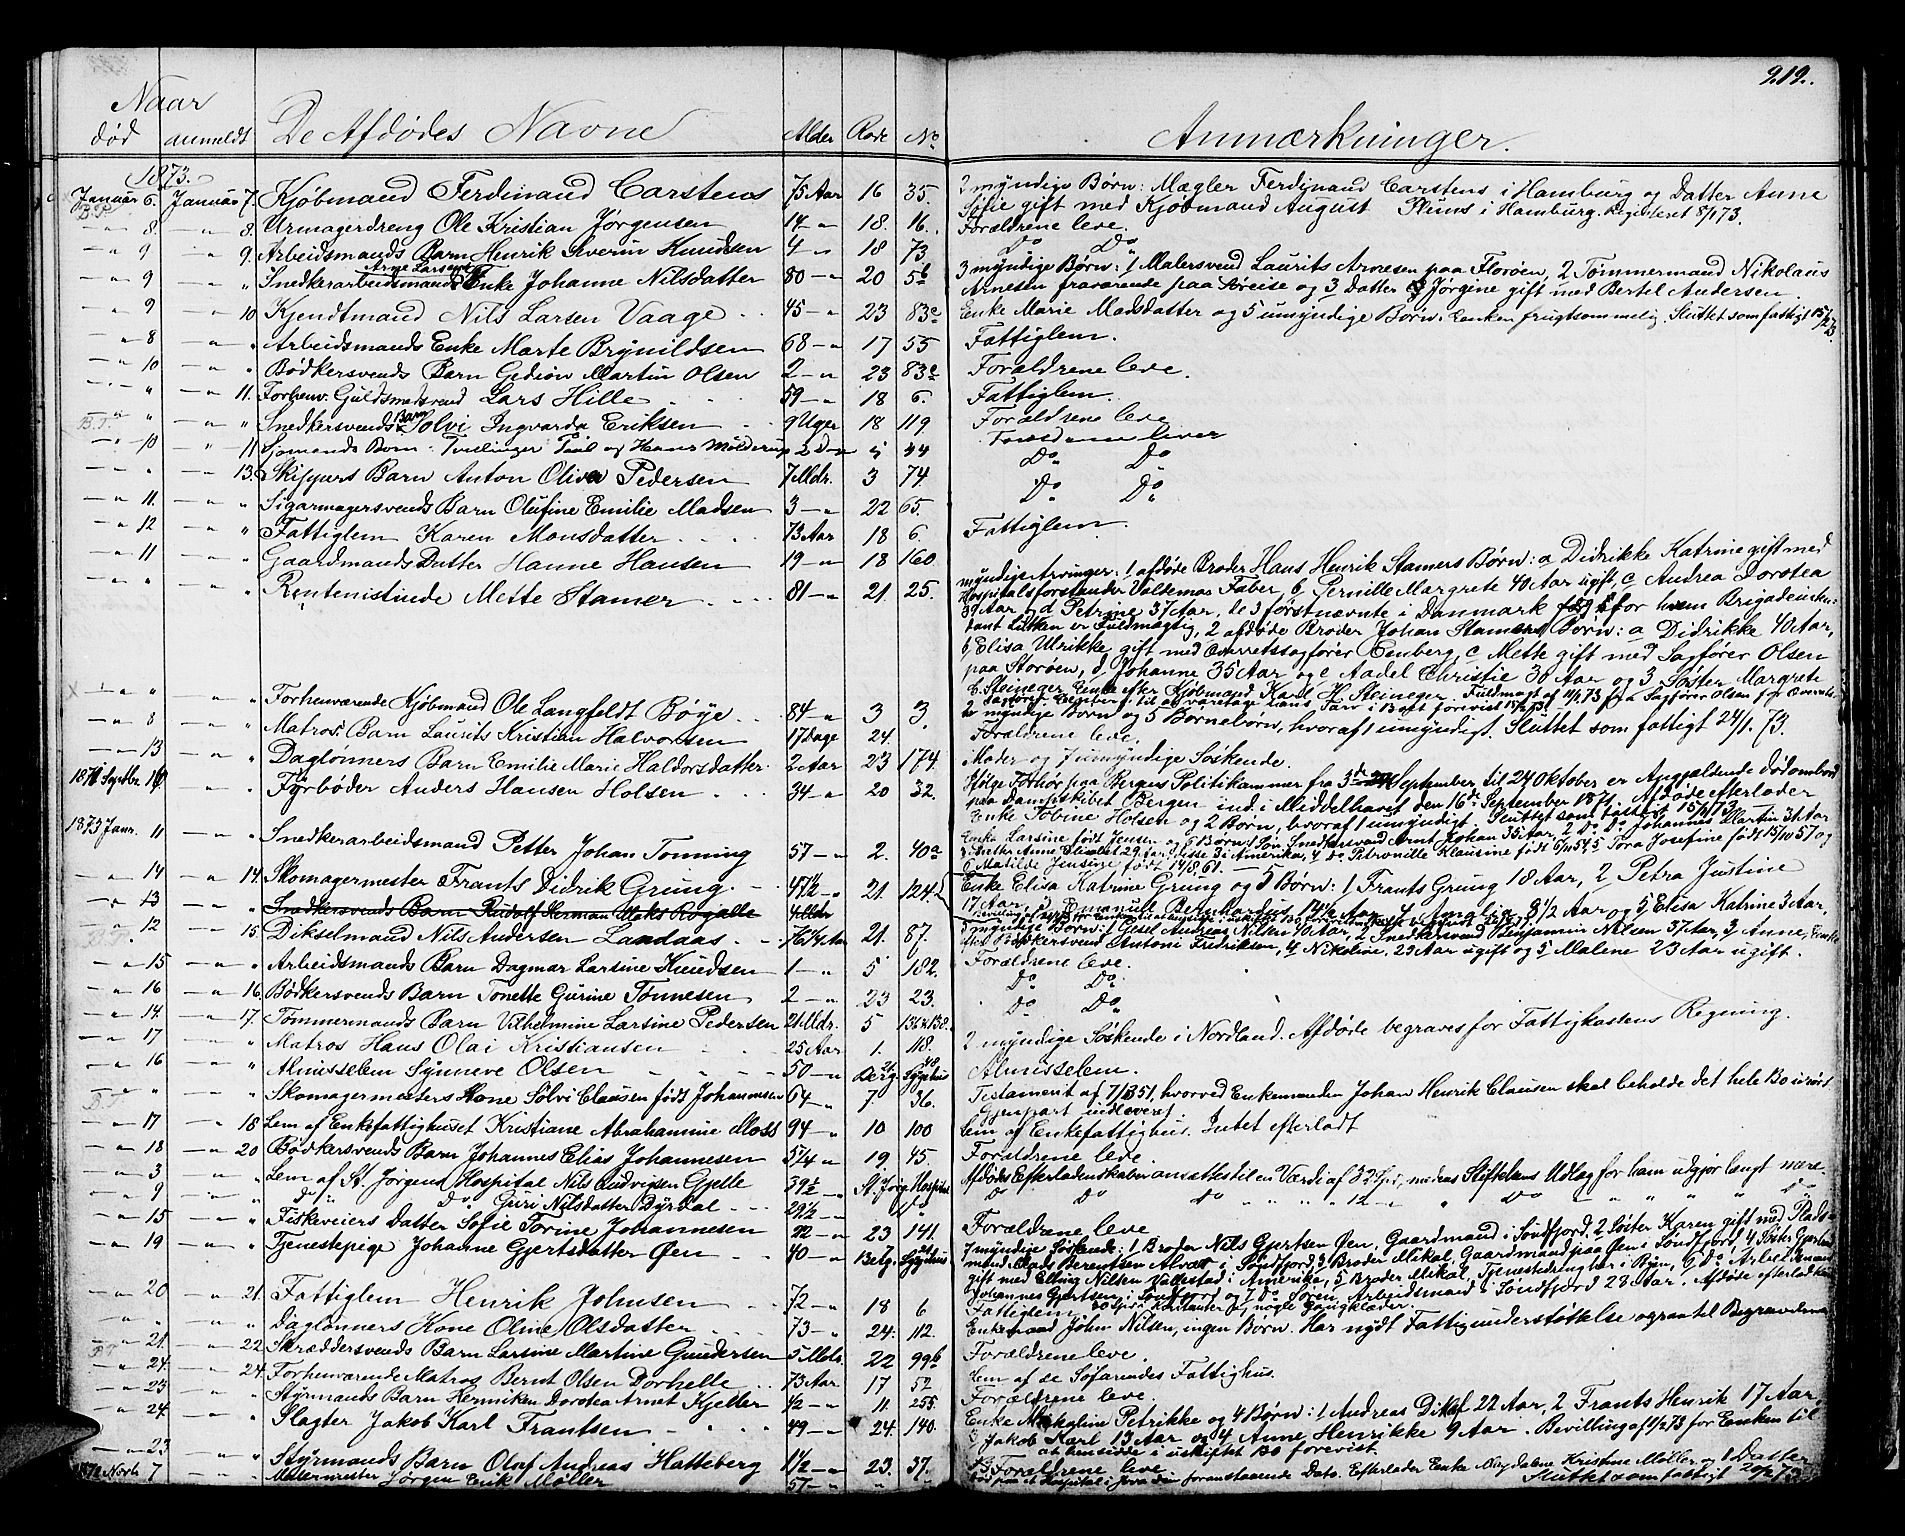 212.
Naar
død anmeldt De Afdødes Navne Alder Rode No Anmærkninger.
1873.
Januar 6. Januar 7. Kjøbmand Ferdinand Carstens 75 Aar 16 35. 2 myndige Børn: Mægler Ferdinand Carstens i Hamburg og Datter Anne
Sofie gift med Kjøbmand August i Hamburg. Registeret 8/1 73.
8. 8. Urmagerdreng Ole Kristian Jørgensen 14 18. 16. Forældrene leve.
9 9. Arbeidsmands Barn Henrik Severin Knudsen 4 18 73 Do Do
9 " Snedkerarbeidsmand Arne Larsens Enke Johanne Nilsdatter 80 20 5b 3 myndige Børn: 1 Malersvend Laurits Arnesen paa Florøen, 2 Tømmermand Nikolaus
Arnesen fraværende paa Reise og 3 Datter Jørgine gift med Bertel Andersen
9 10 Kjendtmand Nils Larsen Vaage 45 23 83c Enke Marie Madsdatter og 5 umyndige Børn. Enken frugtsommelig. Sluttet som fattigt 15/2 73.
8 " Arbeidsmands Enke Marte Brynildsen 68 17 55 Fattiglem.
10 " Bødkersvends Barn Gedion Martin Olsen 2 23 83c Forældrene leve.
" 11. Forhenv. Guldsmedsvend Lars Hille 59 18 6. Fattiglem.
" " Snedkersvends Barn Solvi Ingvarda Eriksen 9 Uger 18 119 Forældrene leve
10 11 Sjømands Børn: Tvillinger Paul og Hans Milderup 2 D 5 44 Forældrene lever
" 13. Skippers Barn Anton Oliver Pedersen 7 Mdr. 3 74. Do Do
11. " Sigarmagersvends Barn Olufine Emilie Madsen 3 22 65. Do Do
12 " Fattiglem Karen Monsdatter 73 Aar 18 6. Fattiglem.
11 " Gaardmands Datter Hanne Hansen 19 18 160
" " Rentenistinde Mette Stamer 81 21. 25. myndige Arvinger: 1 afdøde Broder Hans Henrik Stamers Børn: a Didrikke Katrine gift med
Hospitalsforstander Valdemar Faber, b, Pernille Margrete 40 Aar ugift, c Andrea Dorotea
39 Aar og d Petrine 37 Aar, de 3 førstnævnte i Danmark for hvem Brigadeinten-
dant Lütken er Fuldmægtig, 2 afdøde Broder Johan Stamers Børn: a Didrikke 40 Aar,
b, Elisa Ulrikke gift med Overretssagfører Eenberg, c Mette gift med Sagfører Olsen
paa Storøen, d Johanne 35 Aar og e Aadel Christie 30 Aar og 3 Søster Margrete
C. Steineger Enke efter Kjøbmand Karl H. Steineger.
" " Forhenværende Kjøbmand Ole Langfeldt Bøye 84 3 3. 2 myndige Børn og 5 Børnebørn, hvoraf 1 umyndigt. Sluttet som fattigt 24/1. 73.
8 " Matros' Barn Laurits Kristian Halvorsen 17 Dage 24. Forældrene leve.
13 " Daglønners Barn Emilie Marie Haldorsdatter 2 Aar 23 174. Moder og 7 umyndige Søskende.
1871 Septbr. 16. " Fyrbøder Anders Hansen Holsen 34 20 32. Ifølge Forhør paa Bergens Politikammer fra 3de September til 24 Oktober er Angjældende død ombord
paa Dampskibet Bergen ind. i Middelhavet den 16de September 1871. Afdøde efterlader
Enke Sobine Holsen og 2 Børn, hvoraf 1 umyndigt. Sluttet som fattigt 15/1 73.
1873 Janr. 11 " Snedkerarbeidsmand Petter Johan Tonning 57 2. 40a Enke Larsine født Jensen og 6 Børn: 1 Søn Snedkersvend Arnt Johan 35 Aar, 2 Do Do Johannes Martin 31 Aar
3 Datter Anne Elisabet 29 Aar, disse 3 i Amerika, 4 Do Petronille Klausine født 6/10 54, 5 Tora Josefine født 15/10 57 og
6 Matilde Jensine født 14/8 61.
14 14. Skomagermester Frants Didrik Grung 47 1/2 21. 124. Enke Elisa Katrine Grung og 5 Børn: 1 Frants Grung 18 Aar, 2 Petra Justine
17 Aar, 3 Emanuel Bernhardus 14 1/2 Aar, 4 Amalie 8 1/2 Aar og 5 Elisa Katrine 3 Aar,
13. " Snedkersvends Barn Rudolf Herman Maks Rogalle 4 Mdr
12 15. Dikselmand Nils Andersen Landaas 76 1/4 Aar 21. 87. 5 myndige Børn: 1 Gesel Andreas Nilsen 40 Aar, 2 Snedkersvend Benjamin Nilsen 37 Aar, 3 Anne, Enke
efter Bødkersvend Antoni Fredriksen, 4 Nikoline, 25 Aar ugift og 5 Malene 23 Aar ugift.
15 " Arbeidsmands Barn Dagmar Larsine Knudsen 1 5 182. Forældrene leve.
16 16. Bødkersvends Barn Tonette Gurine Tønnesen 2 23 23. Do Do
14. 17. Tømmermands Barn Vilhelmine Larsine Pedersen 21 Mdr. 5 136 & 138. Do Do
17 " Matros Hans Olai Kristiansen 25 Aar 1. 118. 2 myndige Søskende i Nordland. Afdøde begraves for Fattigkassens Regning.
16 " Almisselem Synneve Olsen 50 Berg. Sygehus Almisselem.
" " Skomagermesters Kone Sølvi Clausen født Johannesen 64 7 36. Testament af 7/13 51, hvorved Enkemanden Johan Henrik Clausen skal beholde det hele Bo urørt
Gjenpart indleveret.
17 18 Lem af Enkefattighuset Kristiane Abrahamine Moss 94 10 100 Lem af Enkefattighus. Intet efterladt
18 20 Bødkersvends Barn Johannes Elias Johannesen 5/4 19. 45 Forældrene leve.
3 " Lem af St. Jørgens Hospital Nils Ludvigsen Gjelle 39 1/2 St. Jørg. Hospital Afdødes Efterladenskaber ansættes til en Værdi af 32 Spd, medens Stiftelsens Udlæg for ham udgjør langt mere.
9 " do Do Guri Nilsdatter Dyrdal 29 1/2 Do Do Do Do 12 " Do " " " " Do
15 " Fiskeveiers Datter Sofie Torine Johannesen 22 23 141. Forældrene leve
19 " Tjenestepige Johanne Gjertsdatter Øen 40 Berg. Sygehus 7 myndige Søskende: 1 Broder Nils Gjertsen Øen, Gaardmand i Søndfjord, 2 Søster Karen gift med Plads-
mand Mads Berentsen Alvær i Søndfjord, 3 Broder Mikal, Gaardmand paa Øen i Søndfjord, 4 Søster Gjertine
gift med Elling Nilsen Vallestad i Amerika, 5 Broder Mikal, Tjenestedreng her i Byen, 6 Do Arbeidsmand
Johannes Gjertsen i Søndfjord og 7 Do Søren Arbeidsmand i Søndfjord 28 Aar. Afdøde efterlod kun
20 Spd Kontanter og nogle Gangklæder.
20 21. Fattiglem Henrik Johnsen 72 18 6 Fattiglem
" " Daglønners Kone Oline Olsdatter 73 24. 112. Enkemand John Nilsen, ingen Børn. Har nydt Fattigunderstøttelse ogsaa til Begravelsen
21. 22 Skræddersvends Barn Larsine Martine Gundersen 5 Mdr. 22 99b Forældrene leve.
24. 24. Forhenværende Matros Bernt Olsen Dorhelle 73 Aar 17 52 Lem af de Søfarendes Fattighus.
23 " Styrmands Barn Henniken Dorotea Arnet Kjeller 42 11. 255 Forældrene leve.
24. " Slagter Jakob Karl Frantsen 49 24. 140. Enke Makalin Petrikke og 4 Børn: 1 Andreas Dikal 22 Aar, 2 Frants Henrik 17 Aar,
3 Jakob Karl 13 Aar og 4 Anne Henrikke 9 Aar. Bevilling af 1/2 73 for Enken til
at hensidde i uskiftet Bo forevist.
23 " Styrmands Barn Oluf Andreas Hatteberg 1 1/2 23. 37. Forældrene leve
1872 Novb 7 " Malermester Jørgen Erik Møller 57 " " paa et Hospital i Java den foranstaaende Dato. Efterlader Enke Magdalene Kristine Møller og 1 Datter
Sluttet som fattigt 20/2 73.